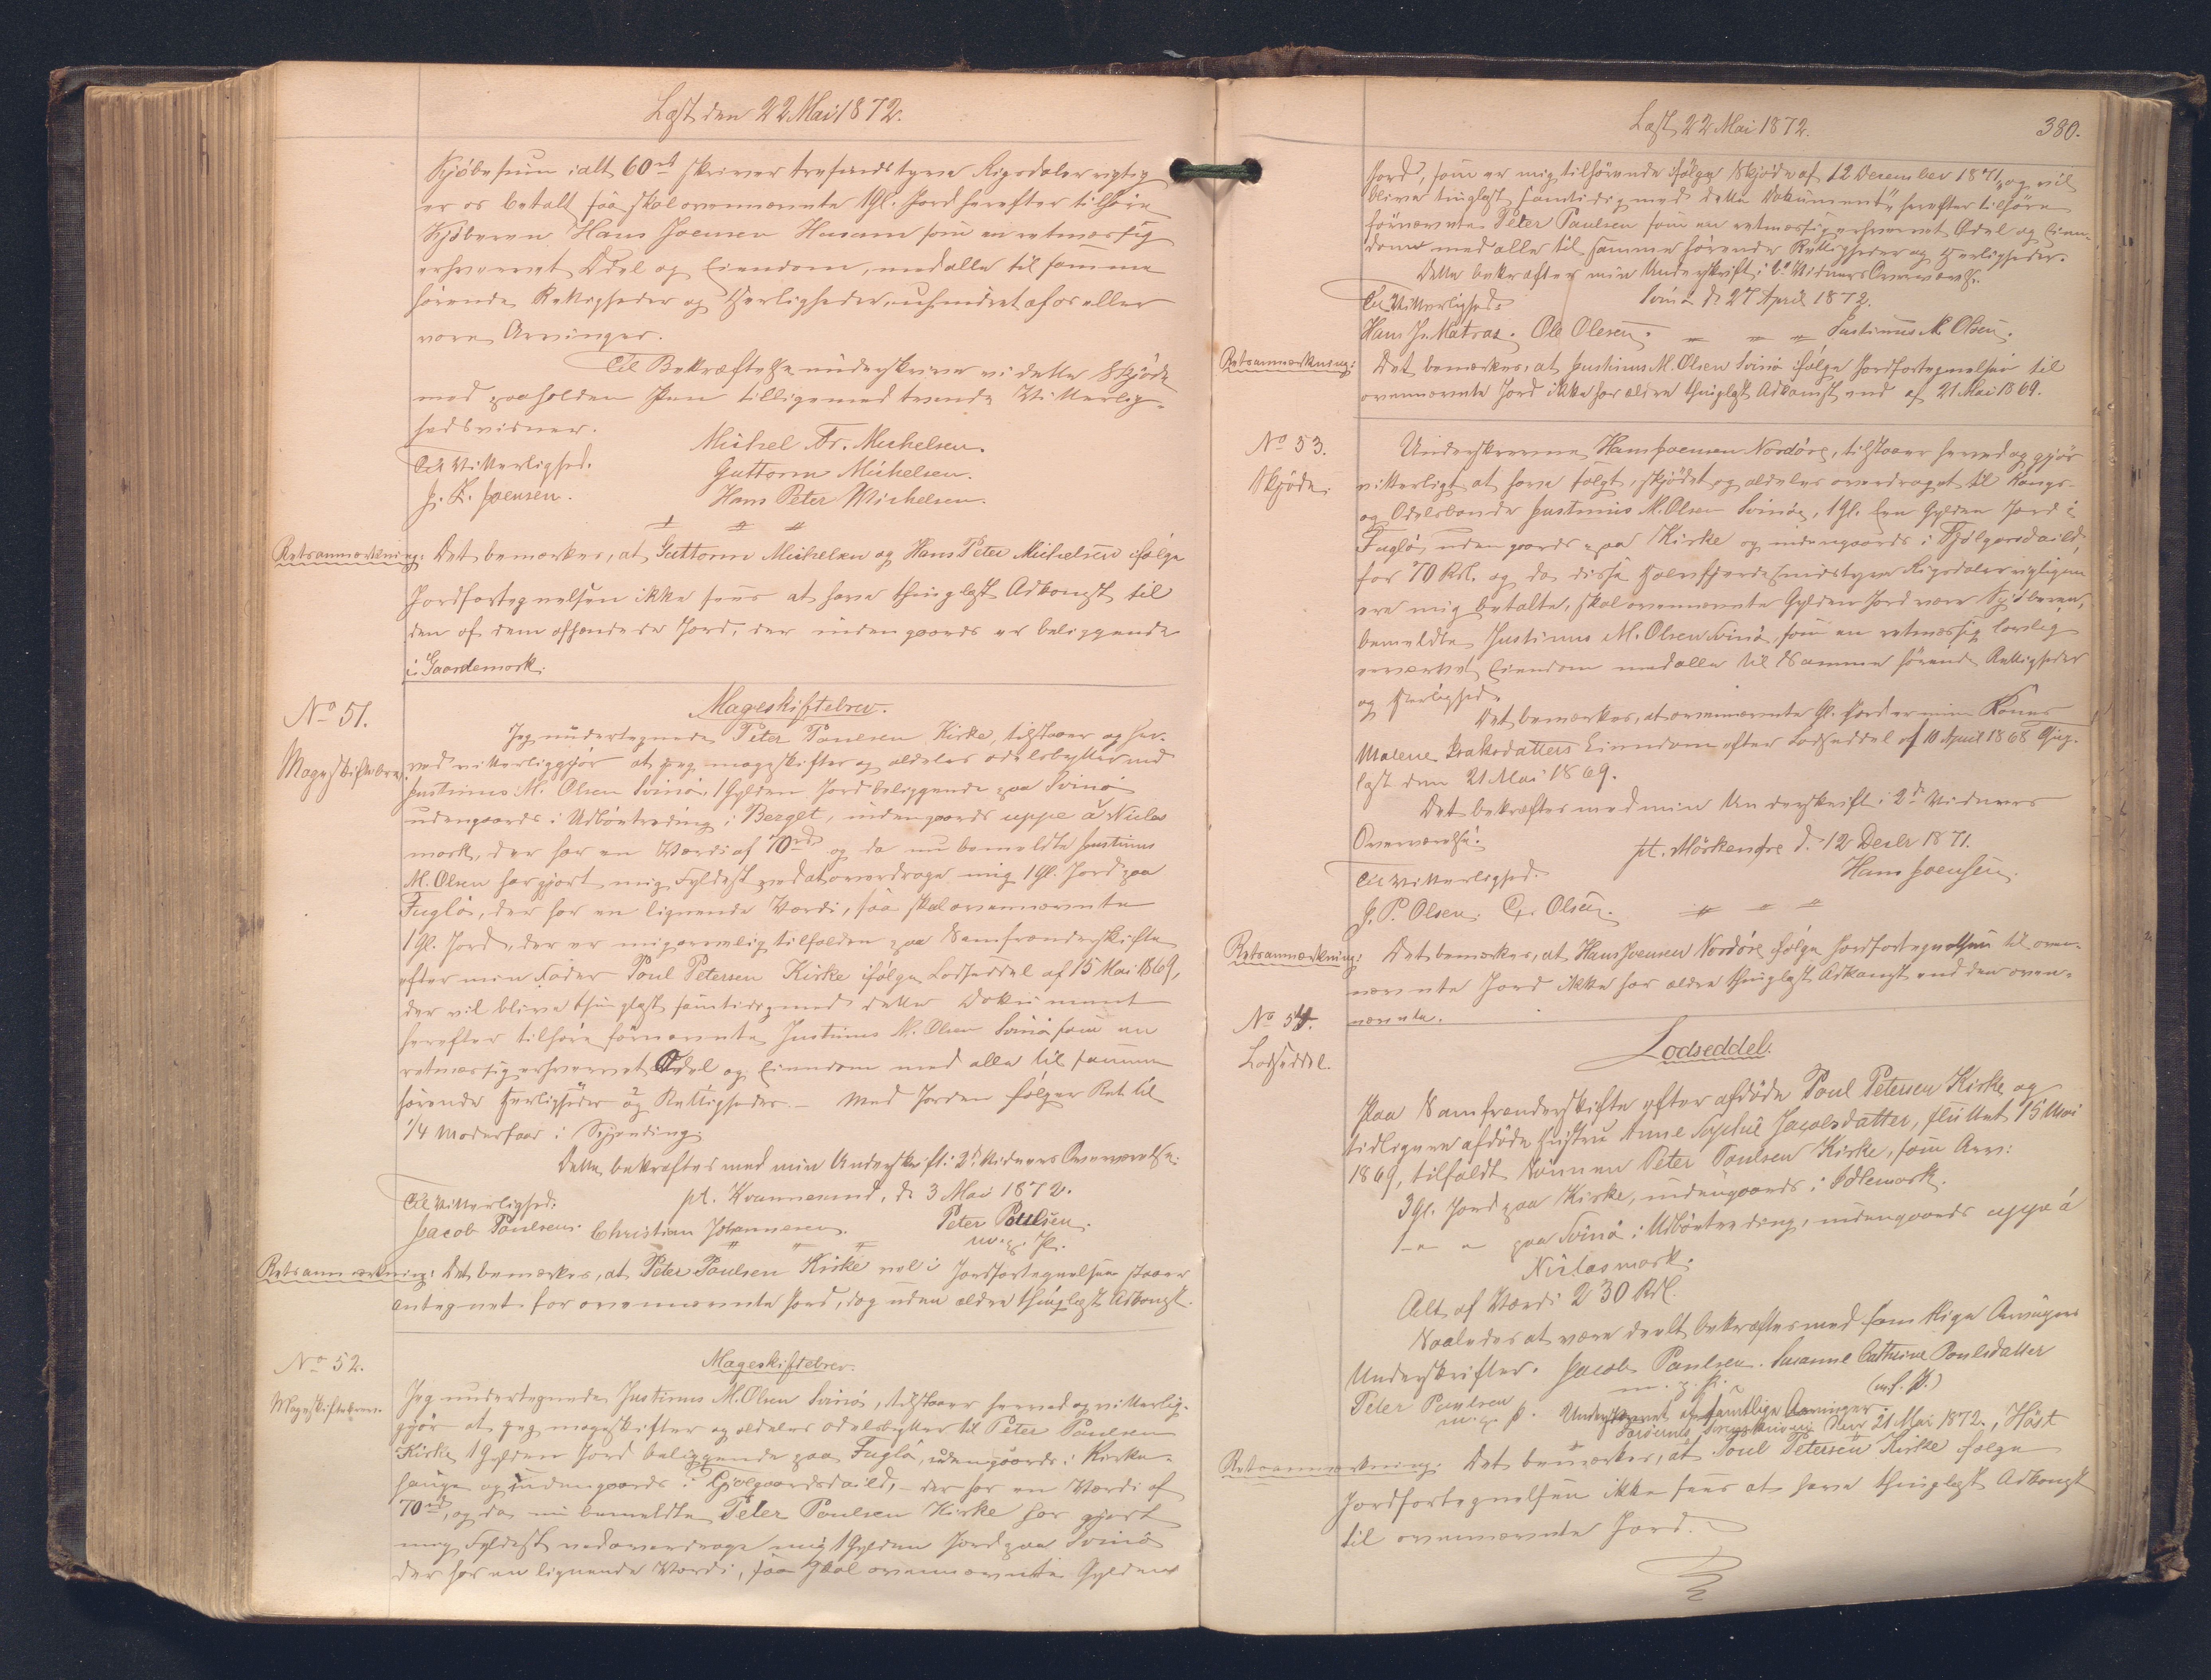 Læst den 22 Mai 1872.
Kjöbesum ialt 60 rd skriver tresindstyve Rigsdaler rigtig
er os betalt saa skal ovennævnte 1 Gl. Jord herefter tilhøre
Kjöberen Hans Joensen Husum som en retmæssig
erhvervet Odel og Eiendom, med alle til samme
hörende Rettigheder og Herligheder, uhindret af os eller
vore Arvinger.
Til Bekræftelse underskrive vi dette Skjöde
med paaholden Pen tilligemed tvende Vitterlig-
hedsvidner.
Michel Fr. Michelsen.
Til Vitterlighed.
Guttorm Michelsen.
J. K. Joensen.
Hans Peter Michelsen.
Retsanmærkning: Det bemærkes, at Guttorm Michelsen og Hans Peter Michelsen ifølge
Jordfortegnelsen ikke sees at have thinglæst Adkomst til
den af dem afhændede Jord, der indengaards er beliggende
i Gaardemark.
No 51.
Mageskiftebrev.
Mageskiftebrev.
Jeg undertegnede Peter Poulsen Kirke, tilstaaer og her-
ved vitterliggjör at jeg mageskifter og aldeles odelsbytter med
Justinus M. Olsen Svinö, 1 Gylden Jord beliggende paa Svinö
udengaards i Udböntrading i Berget, indengaards uppe á Niclas
mark, der har en Værdi af 70 rd og da nu bemeldte Justinus
M. Olsen har gjort mig Fyldest ved at overdrage mig 1 Gl. Jord paa
Fuglö, der har en lignende Værdi, saa skal ovennævnte
1 Gl. Jord, der er mig arvelig tilfalden paa Samfrændeskifte
efter min Fader Poul Petersen Kirke ifølge Lodseddel af 15 Mai 1869,
der vil blive thinglæst samtidig med dette Dokument
herefter tilhöre förnævnte Justinus M. Olsen Svinö som en
retmæssig erhvervet Odel og Eiendom med alle til samme
hörende Herligheder og Rettigheder. – Med Jorden følger Ret til
1/4 Moderfaar i
Dette bekræftes med min Underskrift i 2de Vidners Overværelse.
Til Vitterlighed:
pt. Kvannesund, d. 3 Mai 1872.
Jacob Poulsen. Christian Johannesen.
Peter Poulsen.
m. p. P.
Retsanmærkning: Det bemærkes, at Peter Poulsen Kirke vel i Jordfortegnelsen staaer
antegnet for ovennævnte Jord, dog uden ældre thinglæst Adkomst.
No 52.
Mageskiftebrev.
Mageskiftebrev.
Jeg undertegnede Justinus M. Olsen Svinö, tilstaaer herved og vitterlig-
gjör at jeg mageskifter og aldeles odelsbytter til Peter Poulsen
Kirke 1 Gylden Jord beliggende paa Fuglö, udengaards i Kirke-
hauge og indengaards i Gjolgaardsdaild, – der har en Værdi af
70 rd, og da nu bemeldte Peter Poulsen Kirke har gjort
mig Fyldest ved at overdrage mig 1 Gylden Jord paa Svinö
der har en lignende Værdi, saa skal ovennævnte Gylden
Læst 22 Mai 1872.
380.
Jord, som er mig tilhörende ifølge Skjöde af 12 December 1871, og vil
blive tinglæst samtidig med dette Dokument, herefter tilhöre
förnævnte Peter Poulsen som en retmæssig erhvervet Odel og Eien-
dom med alle til samme hörende Rettigheder og Herligheder.
Dette bekræfter min Underskrift i 2de Vidners Overværelse.
Til Vitterlighed.
Svinö d. 27 April 1872.
Hans J. Matras. Ole Olesen.
Justinus M. Olsen.
Retsanmærkning: Det bemærkes, at Justinus M. Olsen Svinö ifølge Jordfortegnelsen til
ovennævnte Jord ikke har ældre thinglæst Adkomst end af 21 Mai 1869.
No 53.
Skjöde.
Underskrevne Hans Joensen Nordöre, tilstaaer herved og gjör
vitterligt at have solgt, skjödet og aldeles overdraget til Kongs-
og Odelsbonde Justinus M. Olsen Svinö, 1 Gl. Een Gylden Jord i
Fuglö, udengaards paa Kirke og indengaards i Gjolgarsdaild,
for 70 Rd. og da disse Halvfjerdesindstyve Rigsdaler rigtigen
ere mig betalte, skal ovennævnte Gylden Jord være Kjöberen,
bemeldte Justinus M. Olsen Svinö, som en retmæssig lovlig
erhvervet Eiendom med alle til Samme hörende Rettigheder
og Herlighed.
Det bemærkes, at ovennævnte Gl. Jord er min Kones
Malene Isaksdatters Eiendom efter Lodseddel af 10 April 1868 thing-
læst den 21 Mai 1869.
Det bekræftes med min Underskrift i 2de Vidners
Overværelse.
pt. Mörkenöre d. 12 Decbr 1871.
Til Vitterlighed.
Hans Joensen.
J. P. Olsen. C. Olsen.
Retsanmærkning: Det bemærkes, at Hans Joensen Nordöre ifølge Jordfortegnelsen til oven-
nævnte Jord ikke har ældre thinglæst Adkomst end den oven-
nævnte.
No 54.
Lodseddel.
Lodseddel.
Paa Samfrændeskifte efter afdöde Poul Petersen Kirke og
tidligere afdöde Hustru Anne Sophie Jacobsdatter, sluttet 15 Mai
1869, tilfaldt Sönnen Peter Poulsen Kirke, som Arv:
3 Gl. Jord paa Kirke, indengaards i Ödlemark.
1 – " – " paa Svinö i Udböntrading, indengaards uppe á
Niclasmark.
Alt af Værdi 230 Rd.
Saaledes at være deelt bekræftes med samtlige Arvingers
Underskrifter. Jacob Poulsen. Susanne Cathrine Poulsdatter
m. p. P.
(m. f. P.)
Peter Poulsen
m. p. P.
Underskrevet af samtlige Arvinger.
Færöernes Sorenskriveri den 21 Mai 1872., Höst
Retsanmærkning: Det bemærkes, at Poul Petersen Kirke ifølge
Jordfortegnelsen ikke sees at have thinglæst Adkomst
til ovennævnte Jord.